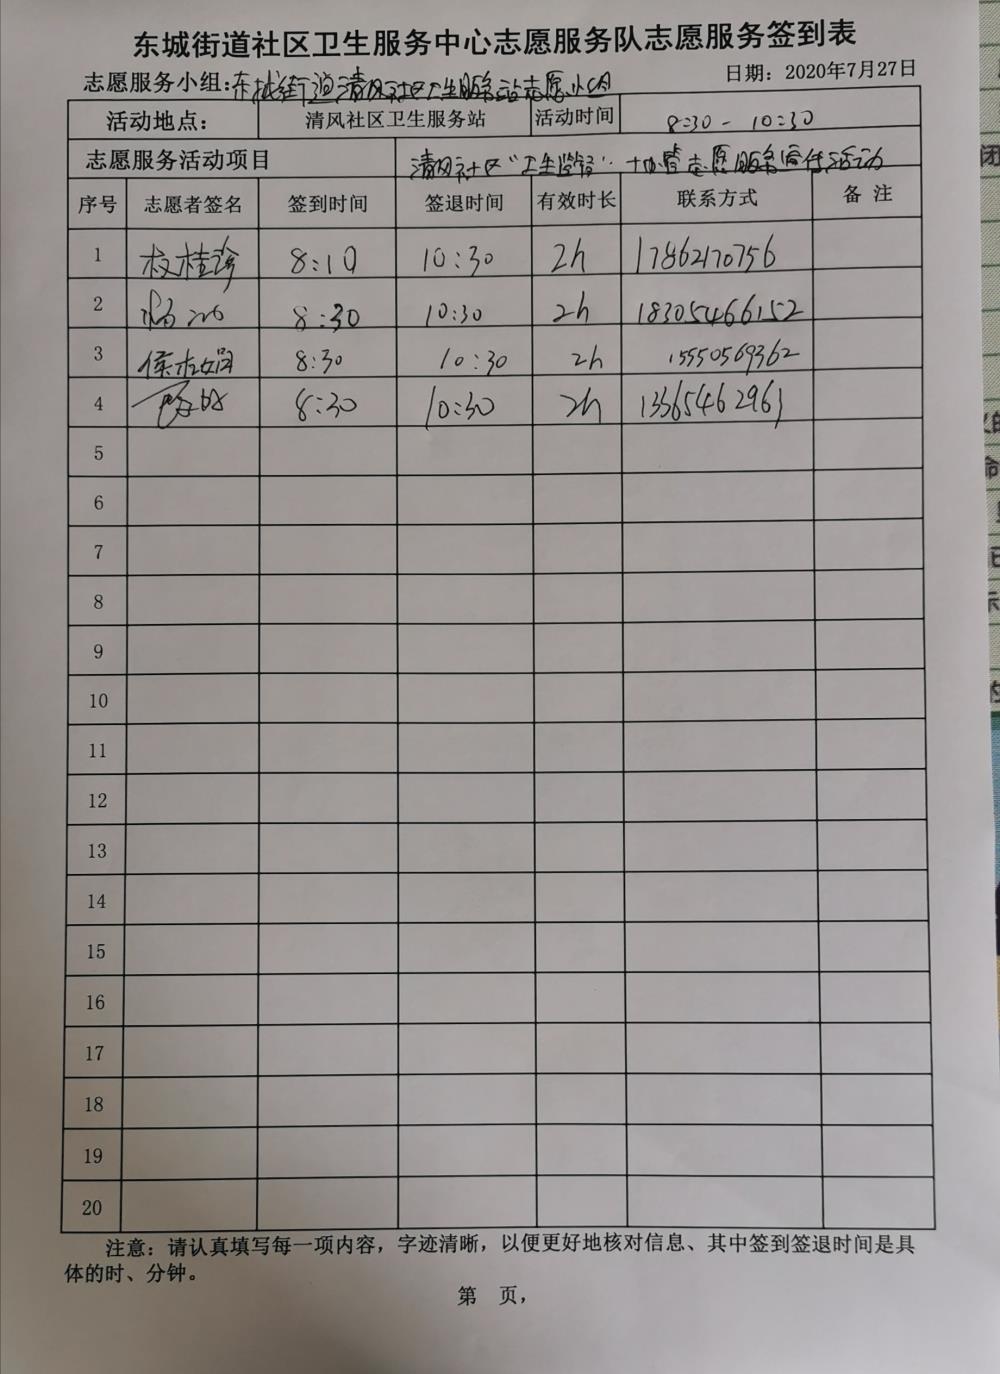 东城街道社区卫生服务中心志愿服务队志愿服务签到表
志愿服务小组:东城街道清风社区卫生服务站志愿小组
日期: 2020年7月27日
活动地点: 清风社区卫生服务站 活动时间 8:30 - 10:30
志愿服务活动项目 清风社区"卫生监督"协管志愿服务宣传活动
序号 志愿者签名 签到时间 签退时间 有效时长 联系方式 备 注
1 桂珍 8:10 10:30 2h 17862170756
2 8:30 10:30 2h 18305466152
3 8:30 10:30 2h 15550569362
4 8:30 10:30 2h 13365462961
5
6
7
8
9
10
11
12
13
14
15
16
17
18
19
20
注意: 请认真填写每一项内容, 字迹清晰, 以便更好地核对信息、其中签到签退时间是具
体的时、分钟。
第 页,